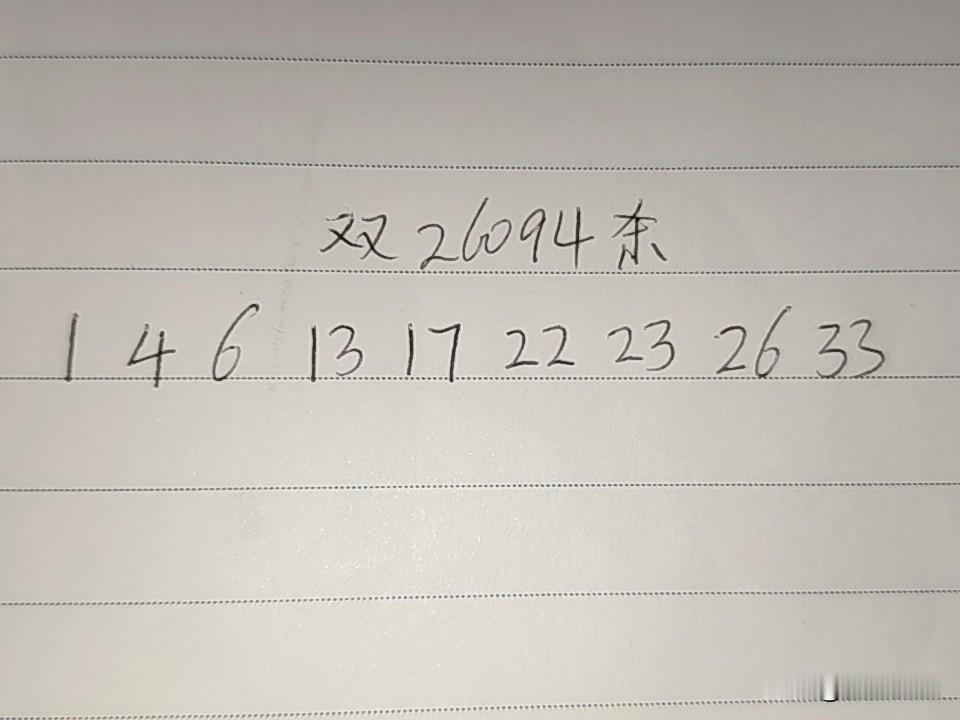 双26094杀
1 4 6 13 17 22 23 26 33